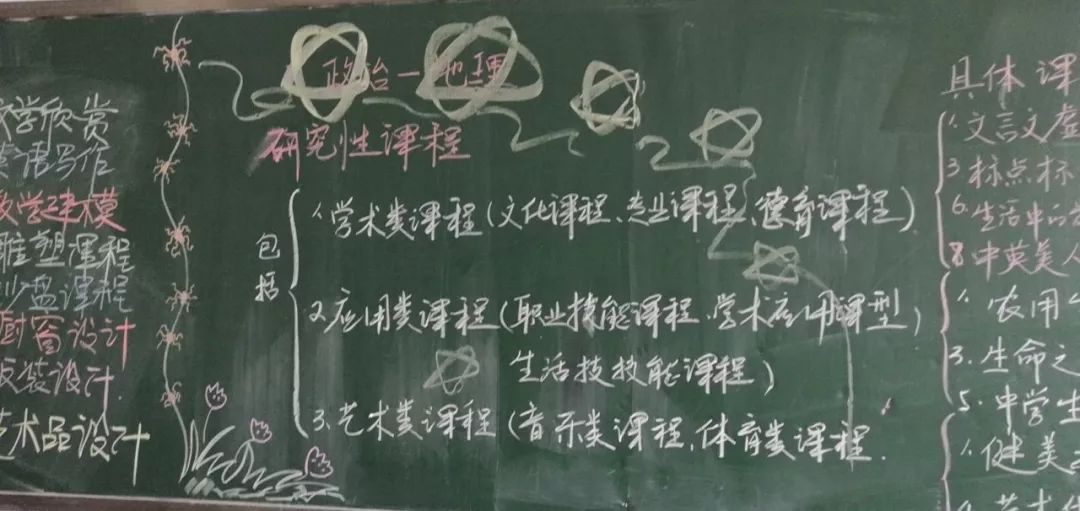 学欣赏
英语写作
数学建模
雕塑课程
沙盘课程
橱窗设计
服装设计.
艺术品设计
政治一地理
研究性课程
包括
1.学术类课程(文化课程、专业课程、德育课程)
2.应用类课程(职业技能课程、学术应用课型
生活技技能课程)
3.艺术类课程(音乐类课程、体育类课程.
具体课
1.文言文虚
3标点标
6.生活中的
8.中英美人
1.农用
3.生命之
5.中学生
1.健美
艺术